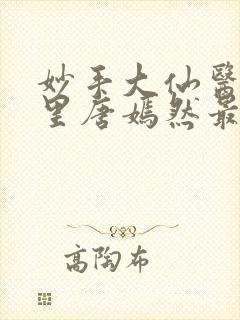 妙手大仙醫
里唐嫣然最
高陶布